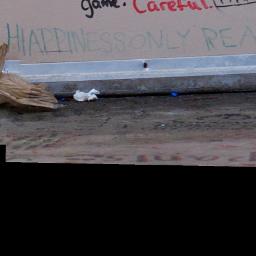 game. Careful.
HAPPINESS ONLY REA